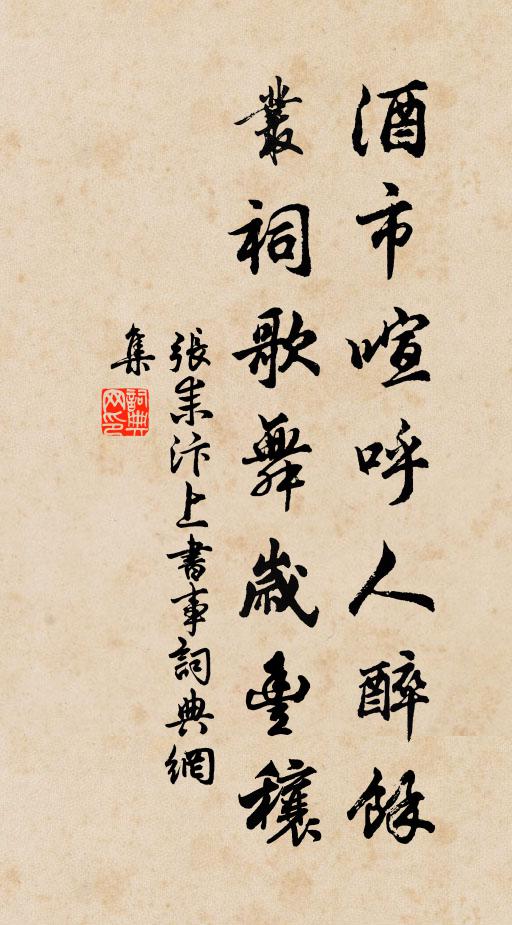 酒市喧呼人醉餘
叢祠歌舞歲豐穰
張耒汴上書事詞典網
集
詞典
网印